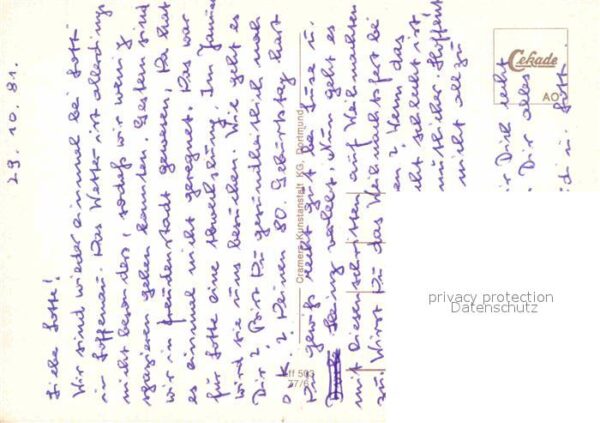 29.10.81.
Liebe Lotte!
Wir sind wieder einmal bei Lotte
in Loffenau. Das Wetter ist allerdings
nicht besonders, sodaß wir wenig
spazieren gehen konnten. Gestern sind
wir in Freudenstadt gewesen, Da hat
es einmal nicht geregnet. Das war
für Lotte eine Abwechslung. Im Januar
wird sie uns besuchen. Wie geht es
Dir? Bist Du gesundheitlich noch
o.K.? Deinen 80. Geburtstag hast
Du gewiß recht gut bei Luise u.
Heinz verlebt. Nun geht es
mit Riesenschritten auf Weihnachten
zu. Wirst Du das Weihnachtsfest bei
en? Wenn das
cht schlecht ist
mütlicher. Hoffent
nicht allzu
ir Dich recht
Dir alles
d u. Lott.
Cekade
AO
Cramers Kunstanstalt KG, Dortmund
Lff 503
77/6
privacy protection
Datenschutz